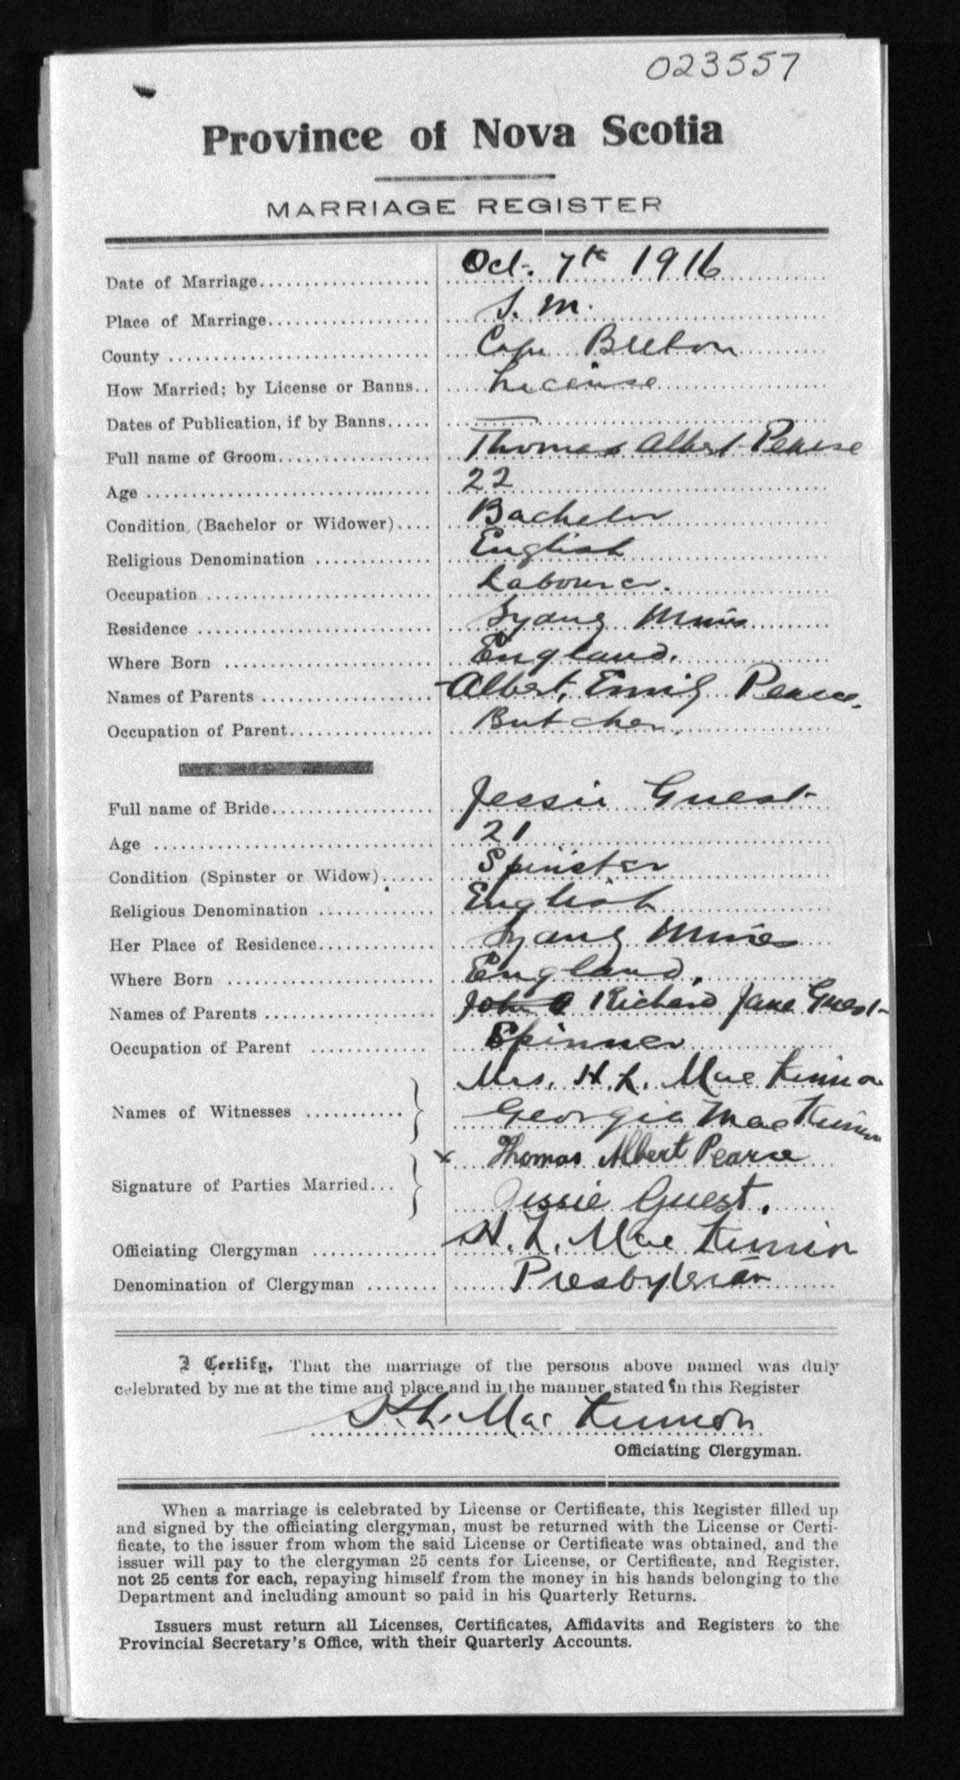 023557
Province of Nova Scotia
MARRIAGE REGISTER
Date of Marriage Oct. 7th 1916
Place of Marriage S. M.
County Cape Breton
How Married; by License or Banns License
Dates of Publication, if by Banns
Full name of Groom Thomas Albert Pearse
Age 22
Condition (Bachelor or Widower) Bachelor
Religious Denomination English
Occupation Labourer.
Residence Sydney Mines
Where Born England.
Names of Parents Albert, Emily Pearce.
Occupation of Parent Butcher.
Full name of Bride Jessie Guest
Age 21
Condition (Spinster or Widow) Spinster
Religious Denomination English
Her Place of Residence Sydney Mines
Where Born England.
Names of Parents Richard Jane Guest
Occupation of Parent Spinner
Mrs. H. L. MacKinnon
Names of Witnesses
Georgia MacKinnon
x Thomas Albert Pearce
Signature of Parties Married
Jessie Guest.
Officiating Clergyman H. L. MacKinnon
Denomination of Clergyman Presbyterian
I Certify, That the marriage of the persons above named was duly
celebrated by me at the time and place and in the manner stated in this Register
H. L. MacKinnon
Officiating Clergyman.
When a marriage is celebrated by License or Certificate, this Register filled up
and signed by the officiating clergyman, must be returned with the License or Certi-
ficate, to the issuer from whom the said License or Certificate was obtained, and the
issuer will pay to the clergyman 25 cents for License, or Certificate, and Register,
not 25 cents for each, repaying himself from the money in his hands belonging to the
Department and including amount so paid in his Quarterly Returns.
Issuers must return all Licenses, Certificates, Affidavits and Registers to the
Provincial Secretary's Office, with their Quarterly Accounts.